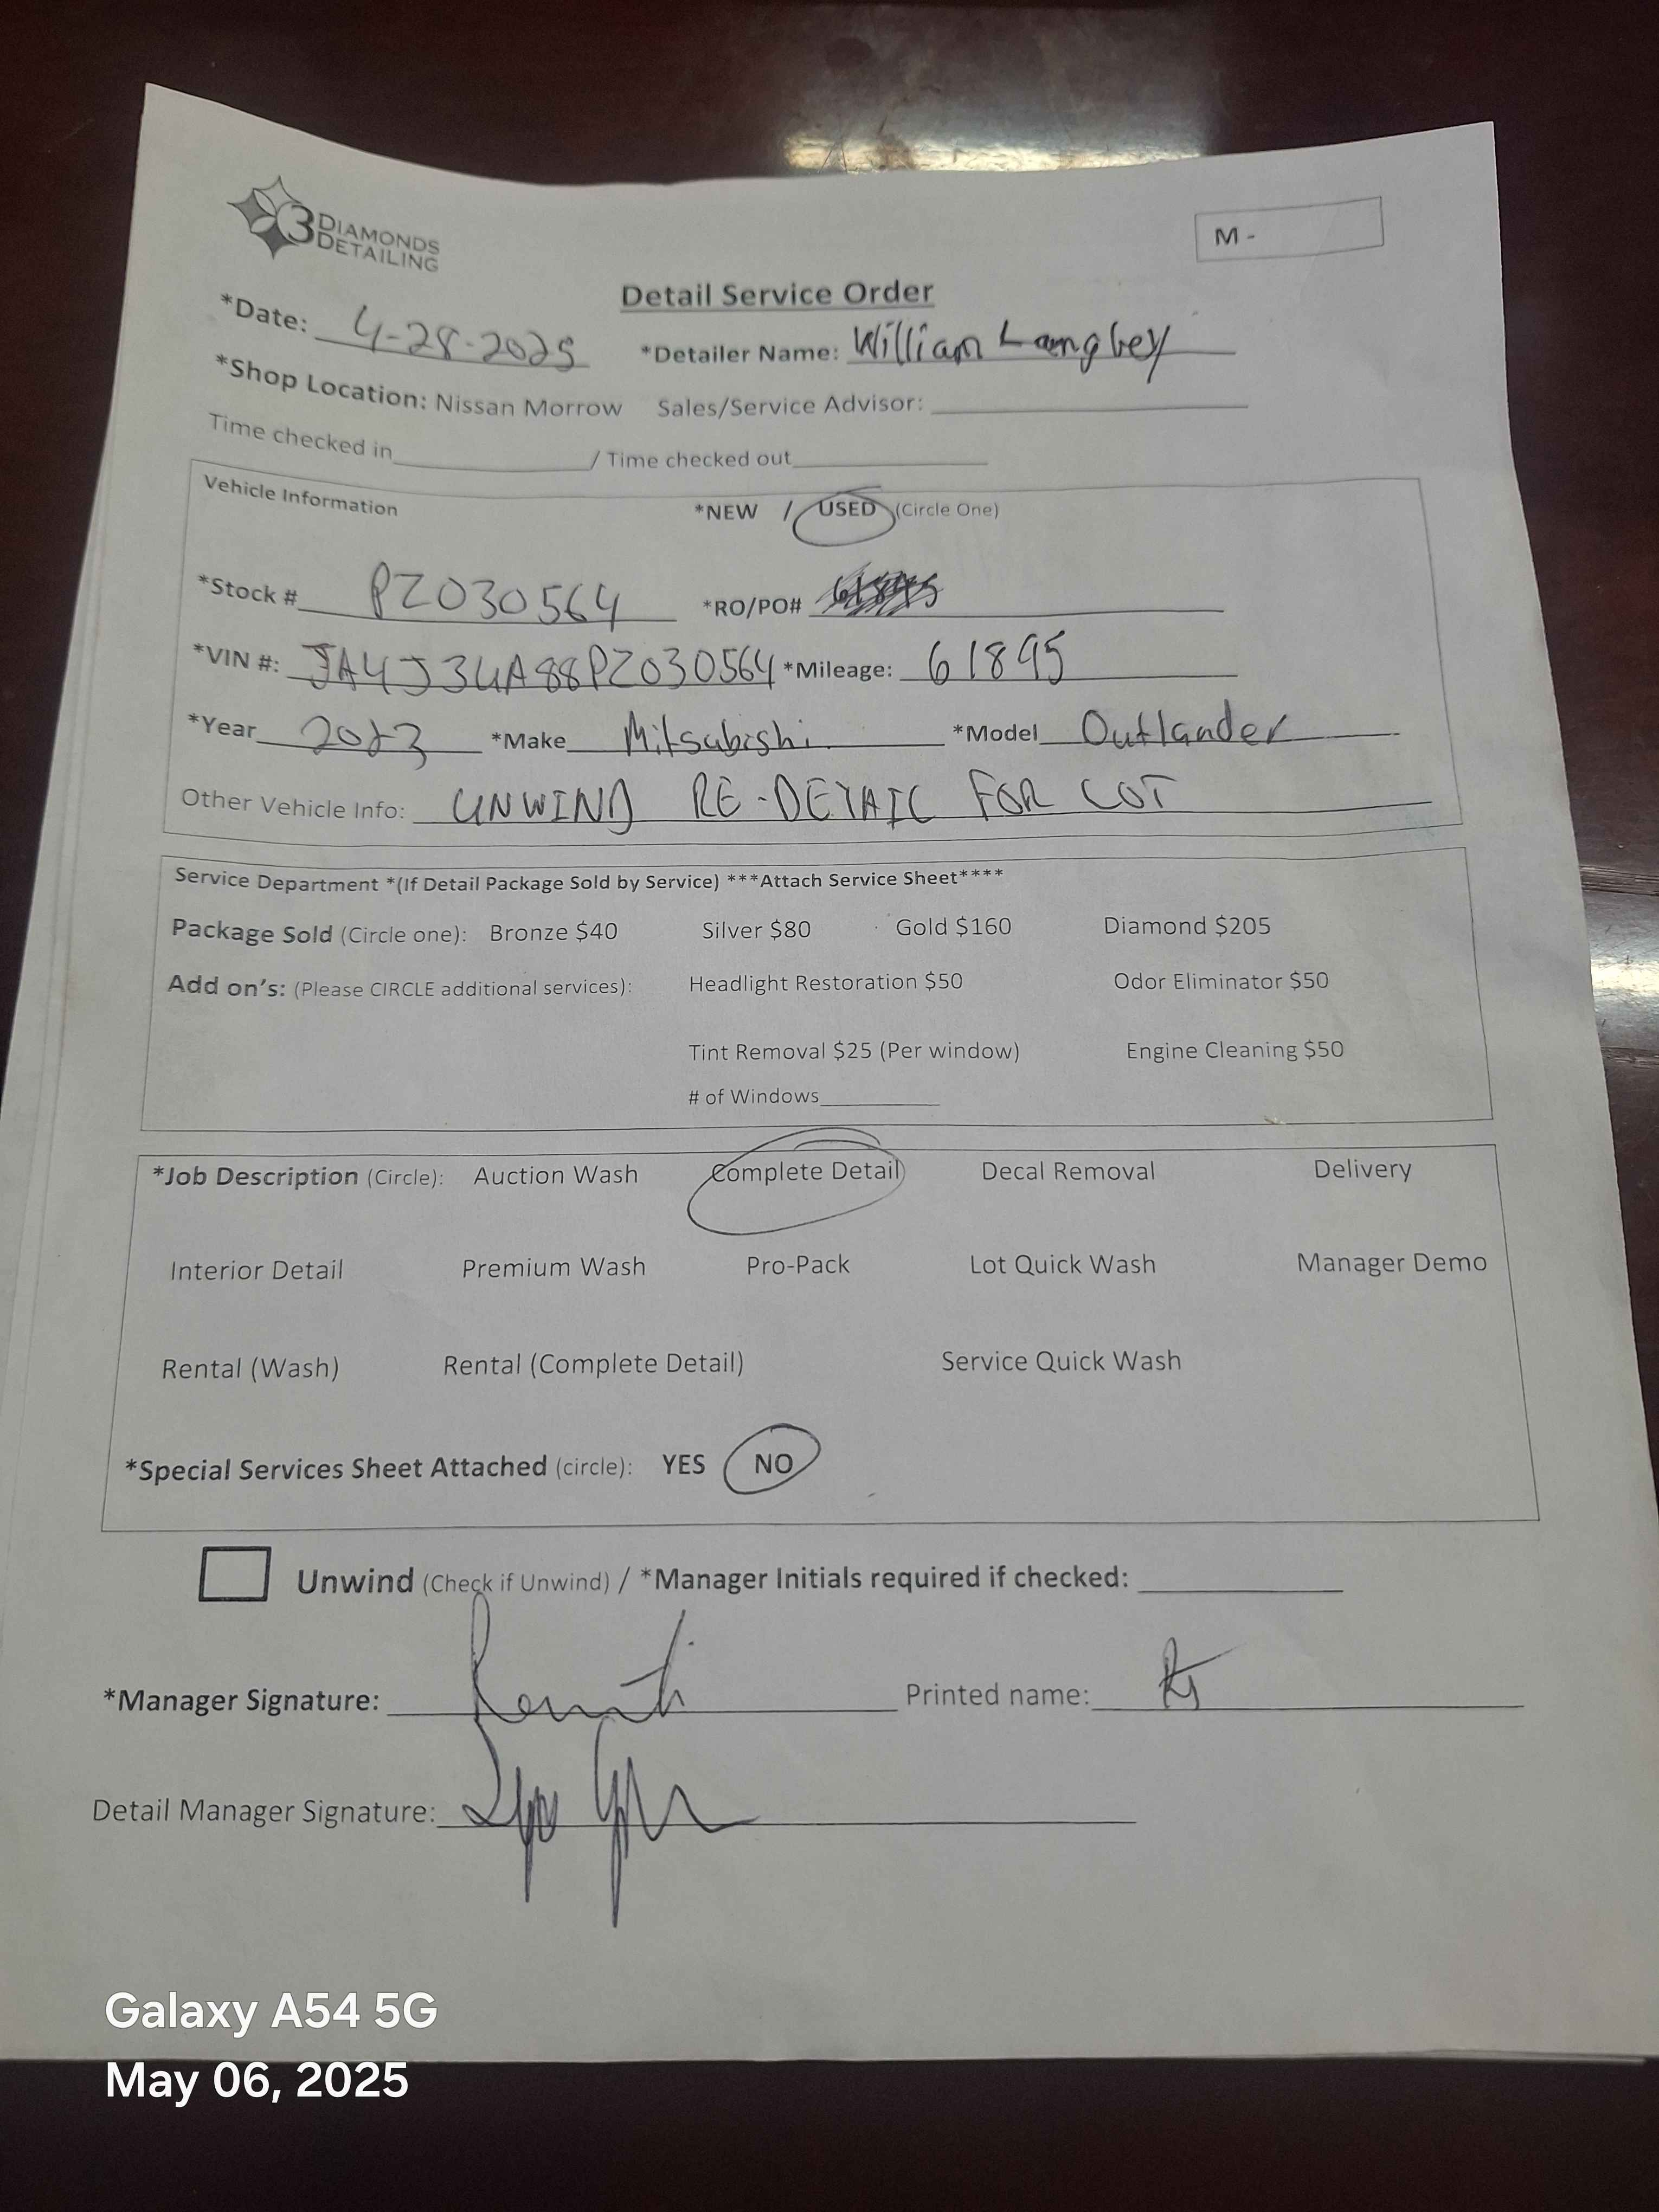 3 DIAMONDS
DETAILING
M -
Detail Service Order
*Date: 4-28-2025 *Detailer Name: William Langley
*Shop Location: Nissan Morrow Sales/Service Advisor:
Time checked in / Time checked out
Vehicle Information *NEW / USED (Circle One)
*Stock # PZ030564 *RO/PO#
*VIN #: JA4J3UA88PZ030564 *Mileage: 61895
*Year 2023 *Make Mitsubishi *Model Outlander
Other Vehicle Info: UNWIND RE-DETAIL FOR LOT
Service Department *(If Detail Package Sold by Service) ***Attach Service Sheet****
Package Sold (Circle one): Bronze $40 Silver $80 Gold $160 Diamond $205
Add on's: (Please CIRCLE additional services): Headlight Restoration $50 Odor Eliminator $50
Tint Removal $25 (Per window) Engine Cleaning $50
# of Windows
*Job Description (Circle): Auction Wash Complete Detail Decal Removal Delivery
Interior Detail Premium Wash Pro-Pack Lot Quick Wash Manager Demo
Rental (Wash) Rental (Complete Detail) Service Quick Wash
*Special Services Sheet Attached (circle): YES NO
Unwind (Check if Unwind) / *Manager Initials required if checked:
*Manager Signature: Printed name:
Detail Manager Signature:
Galaxy A54 5G
May 06, 2025